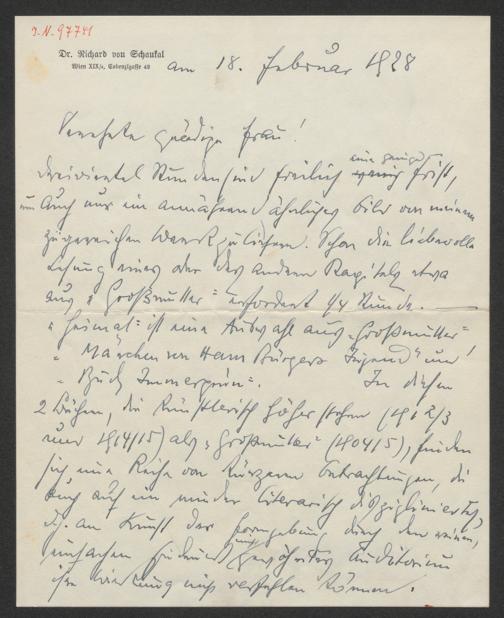 I.N. 97741
Dr. Richard von Schaukal
Wien XIX/1, Cobenzlgasse 42
am 18. Februar 1928
Verehrte gnädige Frau!
eine geringe
dreiviertel Stunden sind freilich wenig Frist,
um auch nur ein annähernd ähnliches Bild von meinem
zu liefern. Schon die liebevolle
Lesung eines oder des andern Kapitels etwa
aus „Großmutter“ erfordert 1/4 Stunde. —
„Heimat“ ist eine Auswahl aus „Großmutter“
„Märchen von Hans Bürgers Jugend“ und
„Buch Immergrün“. In diesen
2 Büchern, die künstlerisch höher stehen (1912/3
und 1914/15) als „Großmutter“ (1904/5), finden
sich eine Reihe von kürzeren Betrachtungen, die
auch auf ein minder literarisch diszipliniertes,
d.h. an Kunst der Formgebung durch den reinen,
einfachen Eindruck gewöhntes Auditorium
ihre Wirkung nicht verfehlen können.